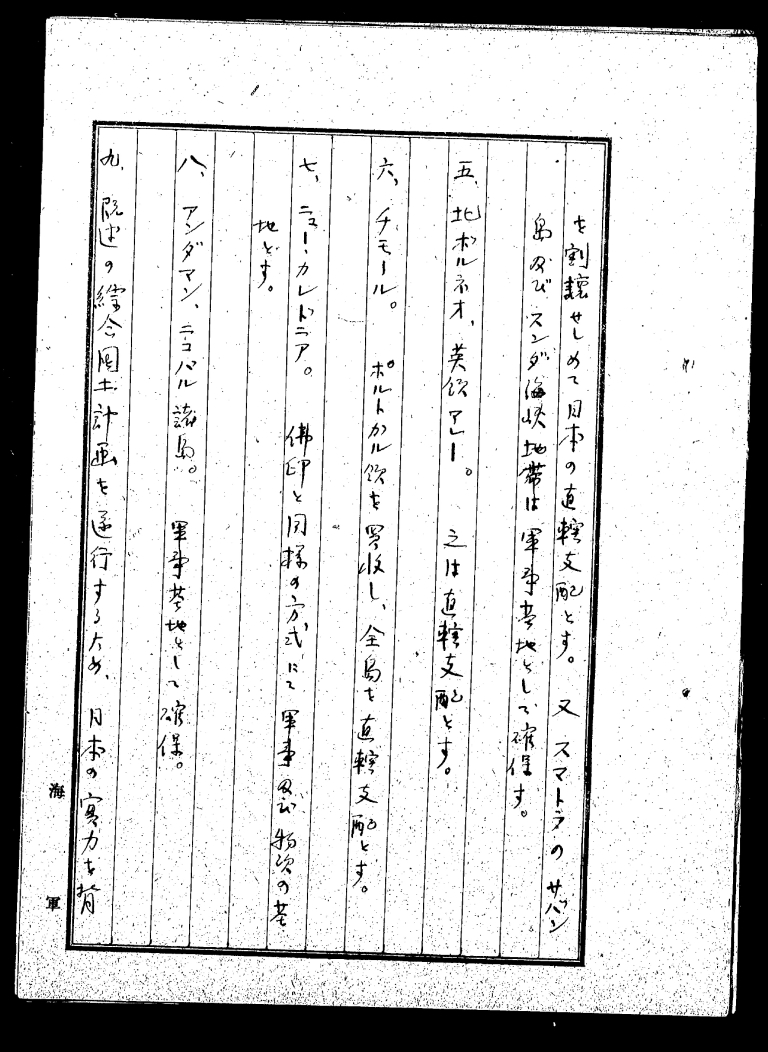 を割譲せしめて日本の直轄支配とす。又スマトラのサバン
島及びスンダ海峡地帯は軍事基地として確保す。
五、北ボルネオ、英領マレー。之は直轄支配とす。
六、チモール。ポルトガル領を買収し、全島を直轄支配とす。
七、ニュー・カレドニア。佛印と同様の方式にて軍事及び物資の基
地とす。
八、アンダマン、ニコバル諸島。軍事基地として確保。
九、既述の綜合国土計画を遂行するため、日本の実力を背
海軍